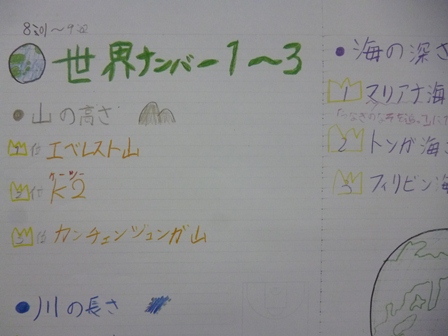 世界ナンバー1〜3
●山の高さ
1位エベレスト山
ケーツー
2位K2
3位カンチェンジュンガ山
●川の長さ
●海の深さ
1 マリアナ海
2 トンガ海
3 フィリピン海